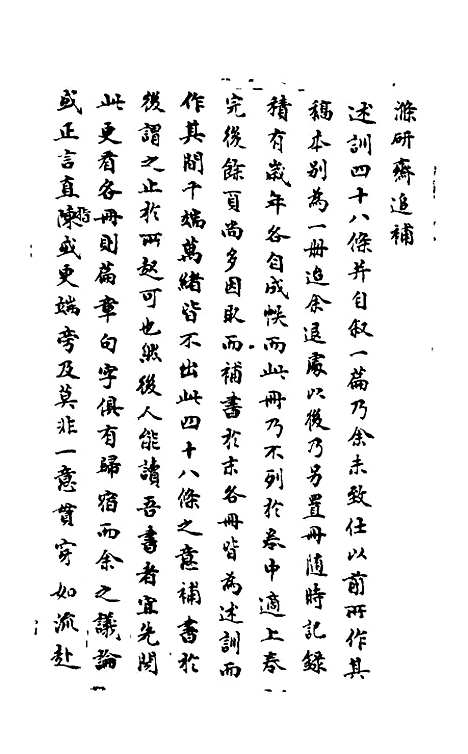 滌研齋追補
述訓四十八條并自叙一篇乃余未致仕以前所作其
稿本別為一冊迨余退處以後乃另置冊隨時記錄
積有歲年各自成帙而此冊乃不列於卷中適上春
完後餘頁尚多因取而補書於末各冊皆為述訓而
作其間千端萬緒皆不出此四十八條之意補書於
後謂之止於所起可也然後人能讀吾書者宜先閱
此更看各冊則篇章句字俱有歸宿而余之議論
或正言直陳或更端旁及莫非一意貫穿如流赴